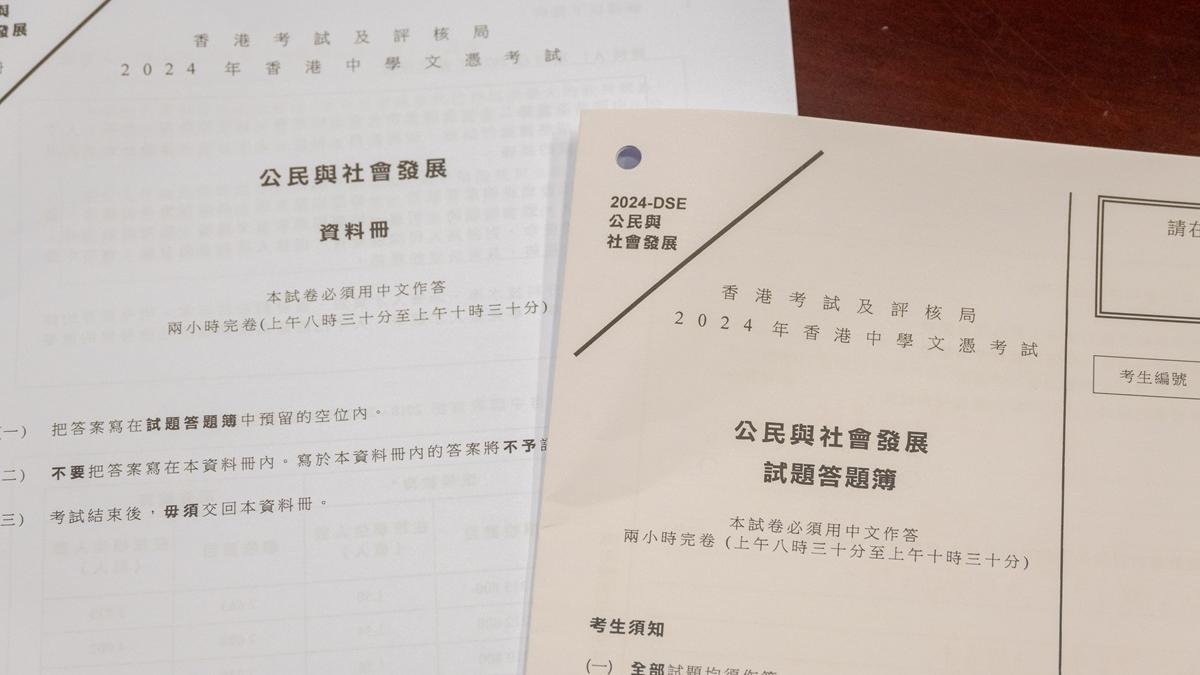 發展
香港考試及評核局
2024年香港中學文憑考試
公民與社會發展
資料冊
本試卷必須用中文作答
兩小時完卷(上午八時三十分至上午十時三十分)
(一) 把答案寫在試題答題簿中預留的空位內。
(二) 不要把答案寫在本資料冊內。寫於本資料冊內的答案將不予
(三) 考試結束後，毋須交回本資料冊。
2024-DSE
公民與
社會發展
香港考試及評核局
2024年香港中學文憑考試
公民與社會發展
試題答題簿
本試卷必須用中文作答
兩小時完卷 (上午八時三十分至上午十時三十分)
考生須知
(一) 全部試題均須作答
請在
考生編號